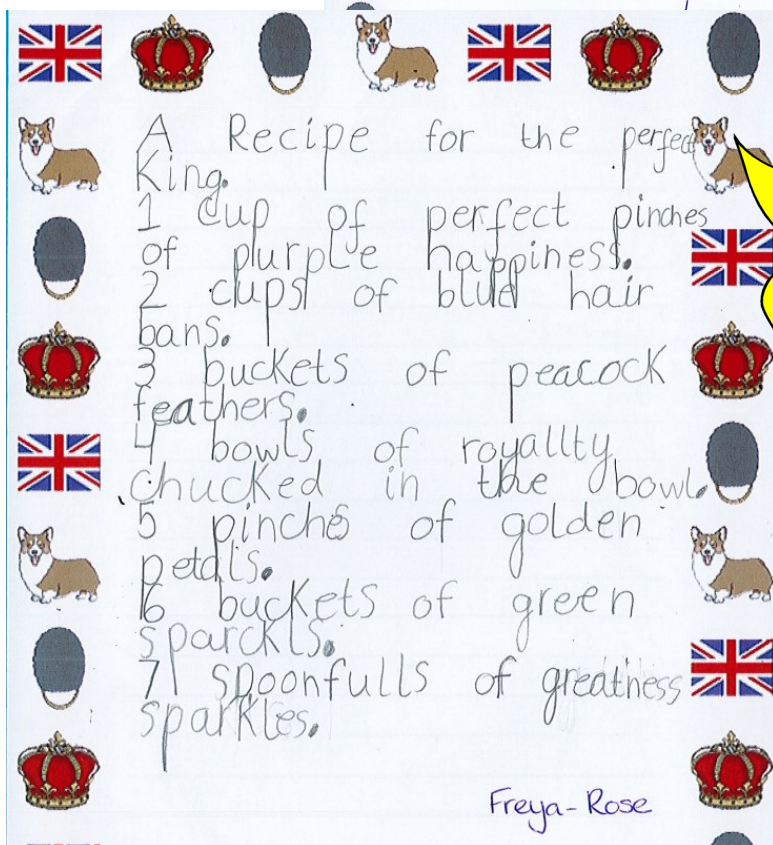 A Recipe for the perfect
King.
1 cup of perfect pinches
of purple happiness.
2 cups of blue hair
bans.
3 buckets of peacock
feathers.
4 bowls of royallty
chucked in the bowl.
5 pinches of golden
petals.
6 buckets of green
sparckls.
7 spoonfulls of greatness
sparkles.
Freya-Rose